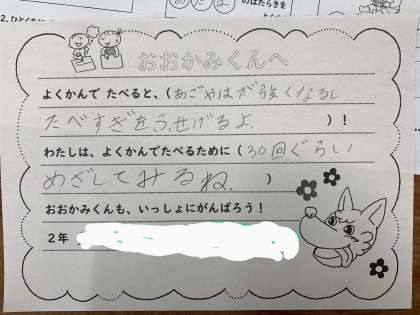 おおかみくんへ
よくかんで たべると、(あごやはが強くなるし
たべすぎをふせげるよ。)!
わたしは、よくかんでたべるために(30回ぐらい
めざしてみるね。)
おおかみくんも、いっしょにがんばろう!
2年